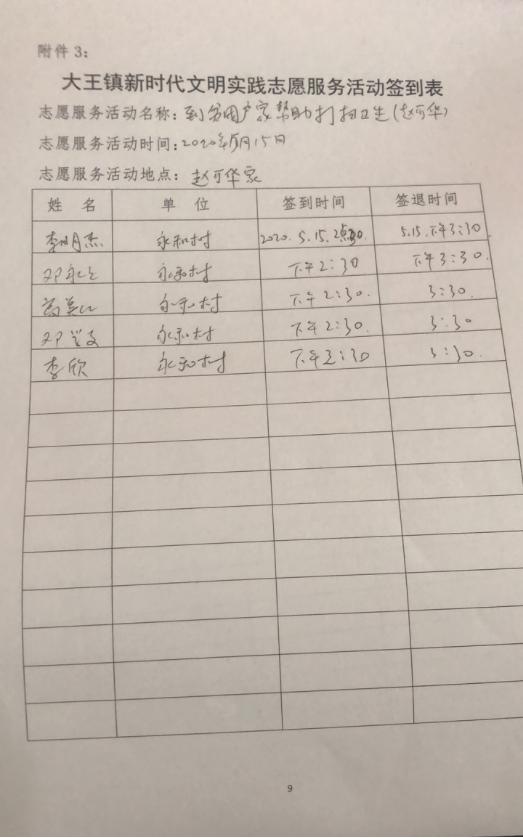 附件 3：
大王镇新时代文明实践志愿服务活动签到表
志愿服务活动名称：到贫困户家帮助打扫卫生（赵可华）
志愿服务活动时间：2020年5月15日
志愿服务活动地点：赵可华家
姓 名 单 位 签到时间 签退时间
李明杰 永和村 2020.5.15. 5.15.下午3:30
邓 永和村 下午2:30 下午3:30.
永和村 下午2:30. 3:30.
邓 永和村 下午2:30. 3:30
李欣 永和村 下午2:30 3:30.
9